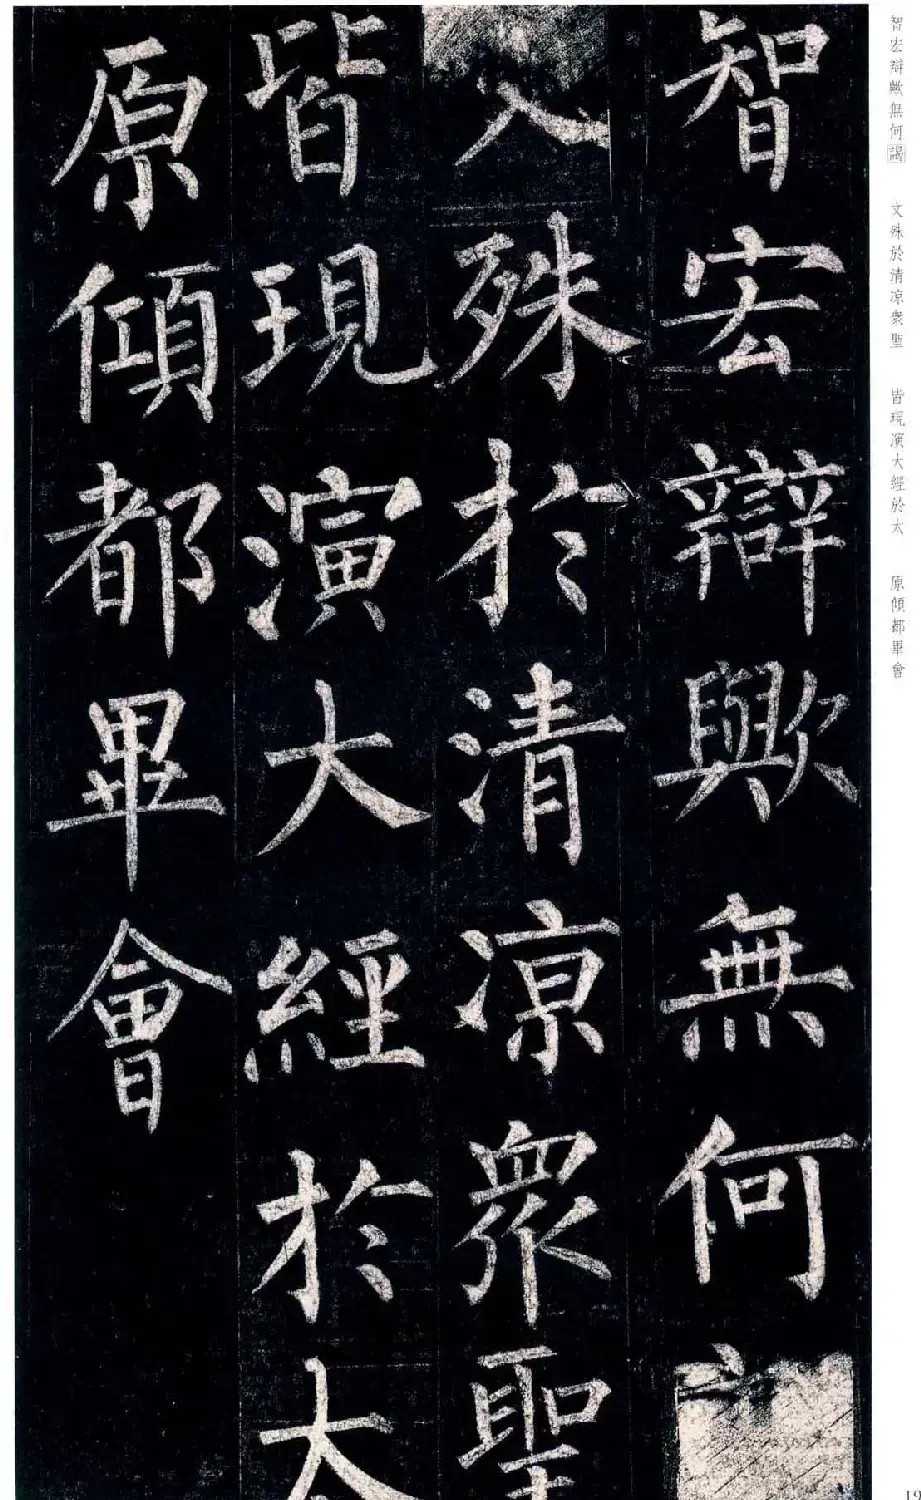 智宏辯歟無何
殊於清涼衆聖
皆現演大經於太
原傾都畢會
智宏辯歟無何謁 文殊於清凉衆聖 皆現演大經於太 原傾都畢會
19